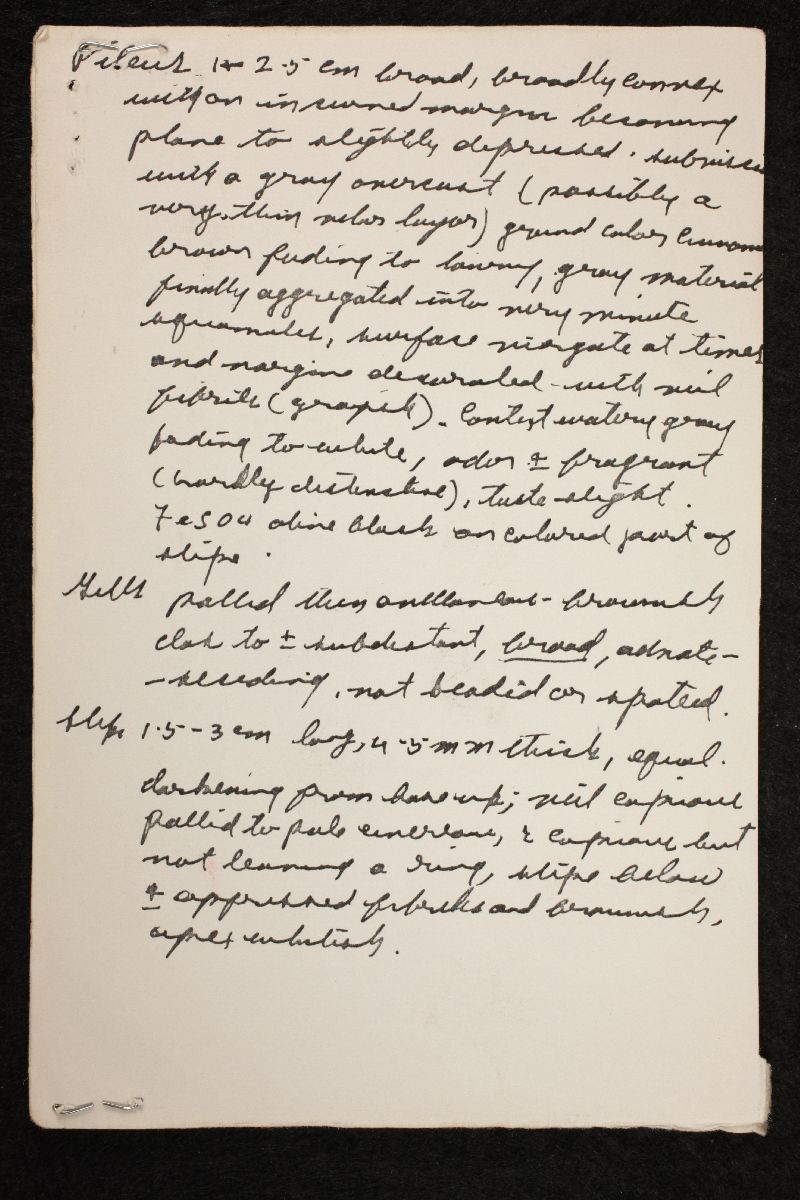 Pileus 1-2.5 cm broad, broadly convex
with an incurved margin becoming
plane to slightly depressed. subvisci
with a gray overcast (possibly a
very thin velar layer) ground color cinnamo
brown fading to tawny, gray material
finally aggregated into very minute
squamules, surface virgate at times
and margine decorated with veil
fibrils (grayish). Context watery gray
fading to white, odor ± fragrant
(hardly distinctive), taste slight.
FeSO4 olive black on colored part of
stipe.
Gills pallid then avellaneous-brownish
close to ± subdistant, broad, adnate-
-seceding, not beaded or spotted.
Stipe 1.5-3 cm long, 4-5 mm thick, equal.
darkening from base up; veil copious
pallid to pale cinereous, copious but
not leaving a ring, stipe below
± appressed fibrils and brownish,
apex whitish.